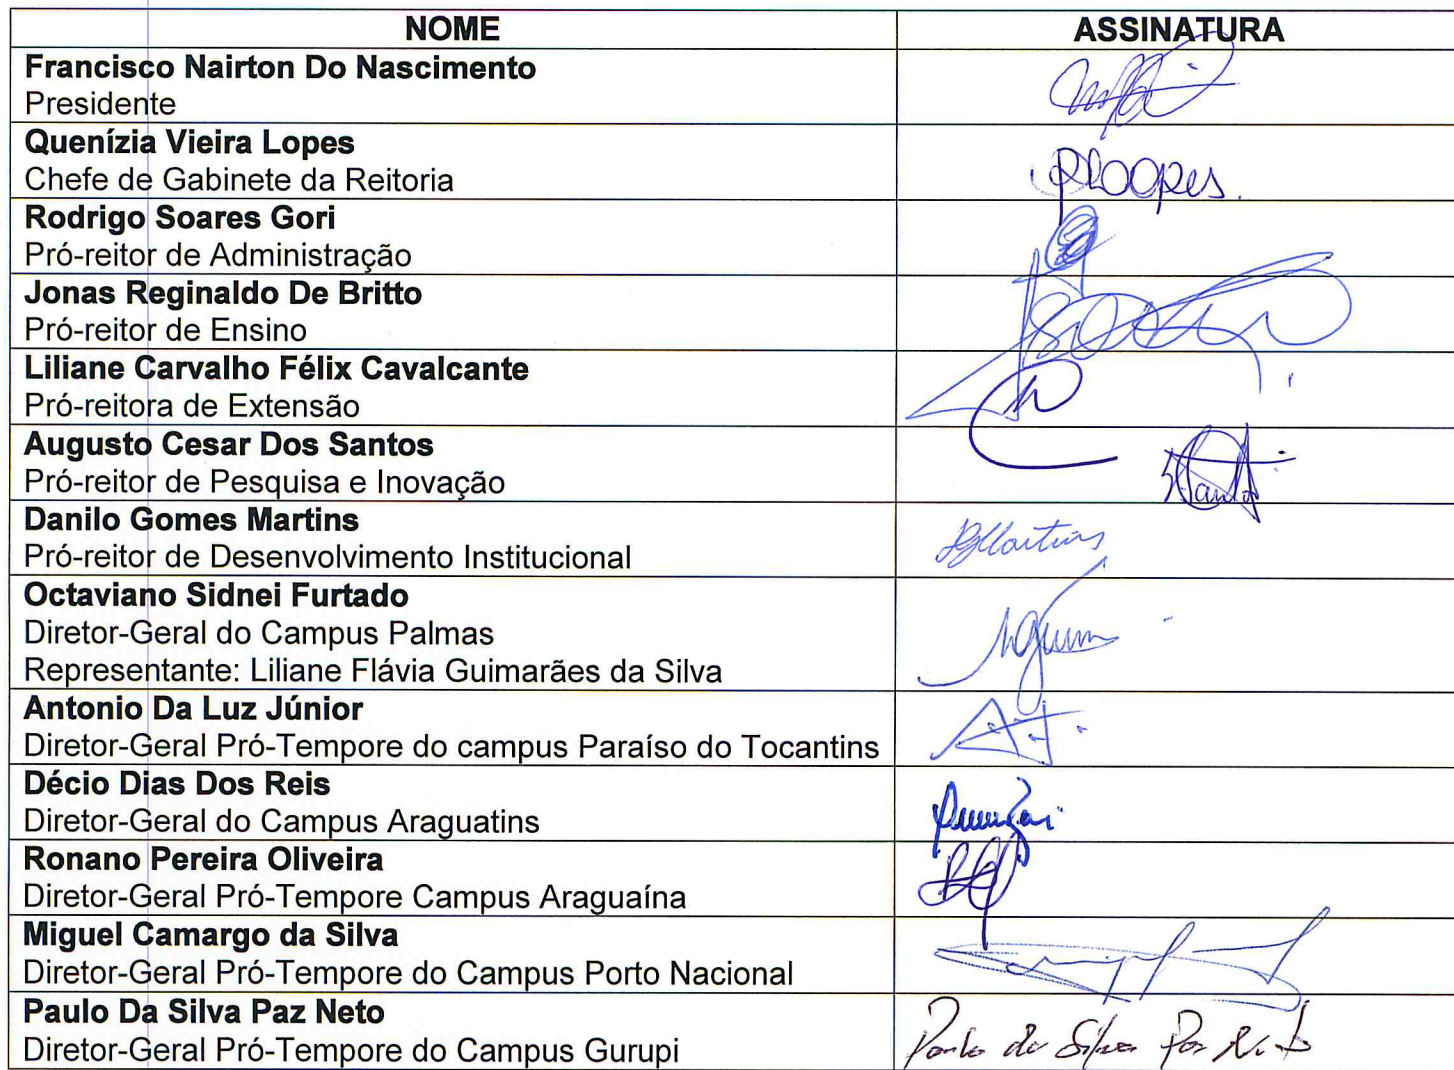 NOME ASSINATURA
Francisco Nairton Do Nascimento
Presidente
Quenízia Vieira Lopes
Chefe de Gabinete da Reitoria
QLoopes.
Rodrigo Soares Gori
Pró-reitor de Administração
Jonas Reginaldo De Britto
Pró-reitor de Ensino
Liliane Carvalho Félix Cavalcante
Pró-reitora de Extensão
Augusto Cesar Dos Santos
Pró-reitor de Pesquisa e Inovação
Danilo Gomes Martins
Pró-reitor de Desenvolvimento Institucional
DGMartins
Octaviano Sidnei Furtado
Diretor-Geral do Campus Palmas
Representante: Liliane Flávia Guimarães da Silva
Antonio Da Luz Júnior
Diretor-Geral Pró-Tempore do campus Paraíso do Tocantins
Décio Dias Dos Reis
Diretor-Geral do Campus Araguatins
Ronano Pereira Oliveira
Diretor-Geral Pró-Tempore Campus Araguaína
Miguel Camargo da Silva
Diretor-Geral Pró-Tempore do Campus Porto Nacional
Paulo Da Silva Paz Neto
Diretor-Geral Pró-Tempore do Campus Gurupi
Paulo da Silva Paz Neto